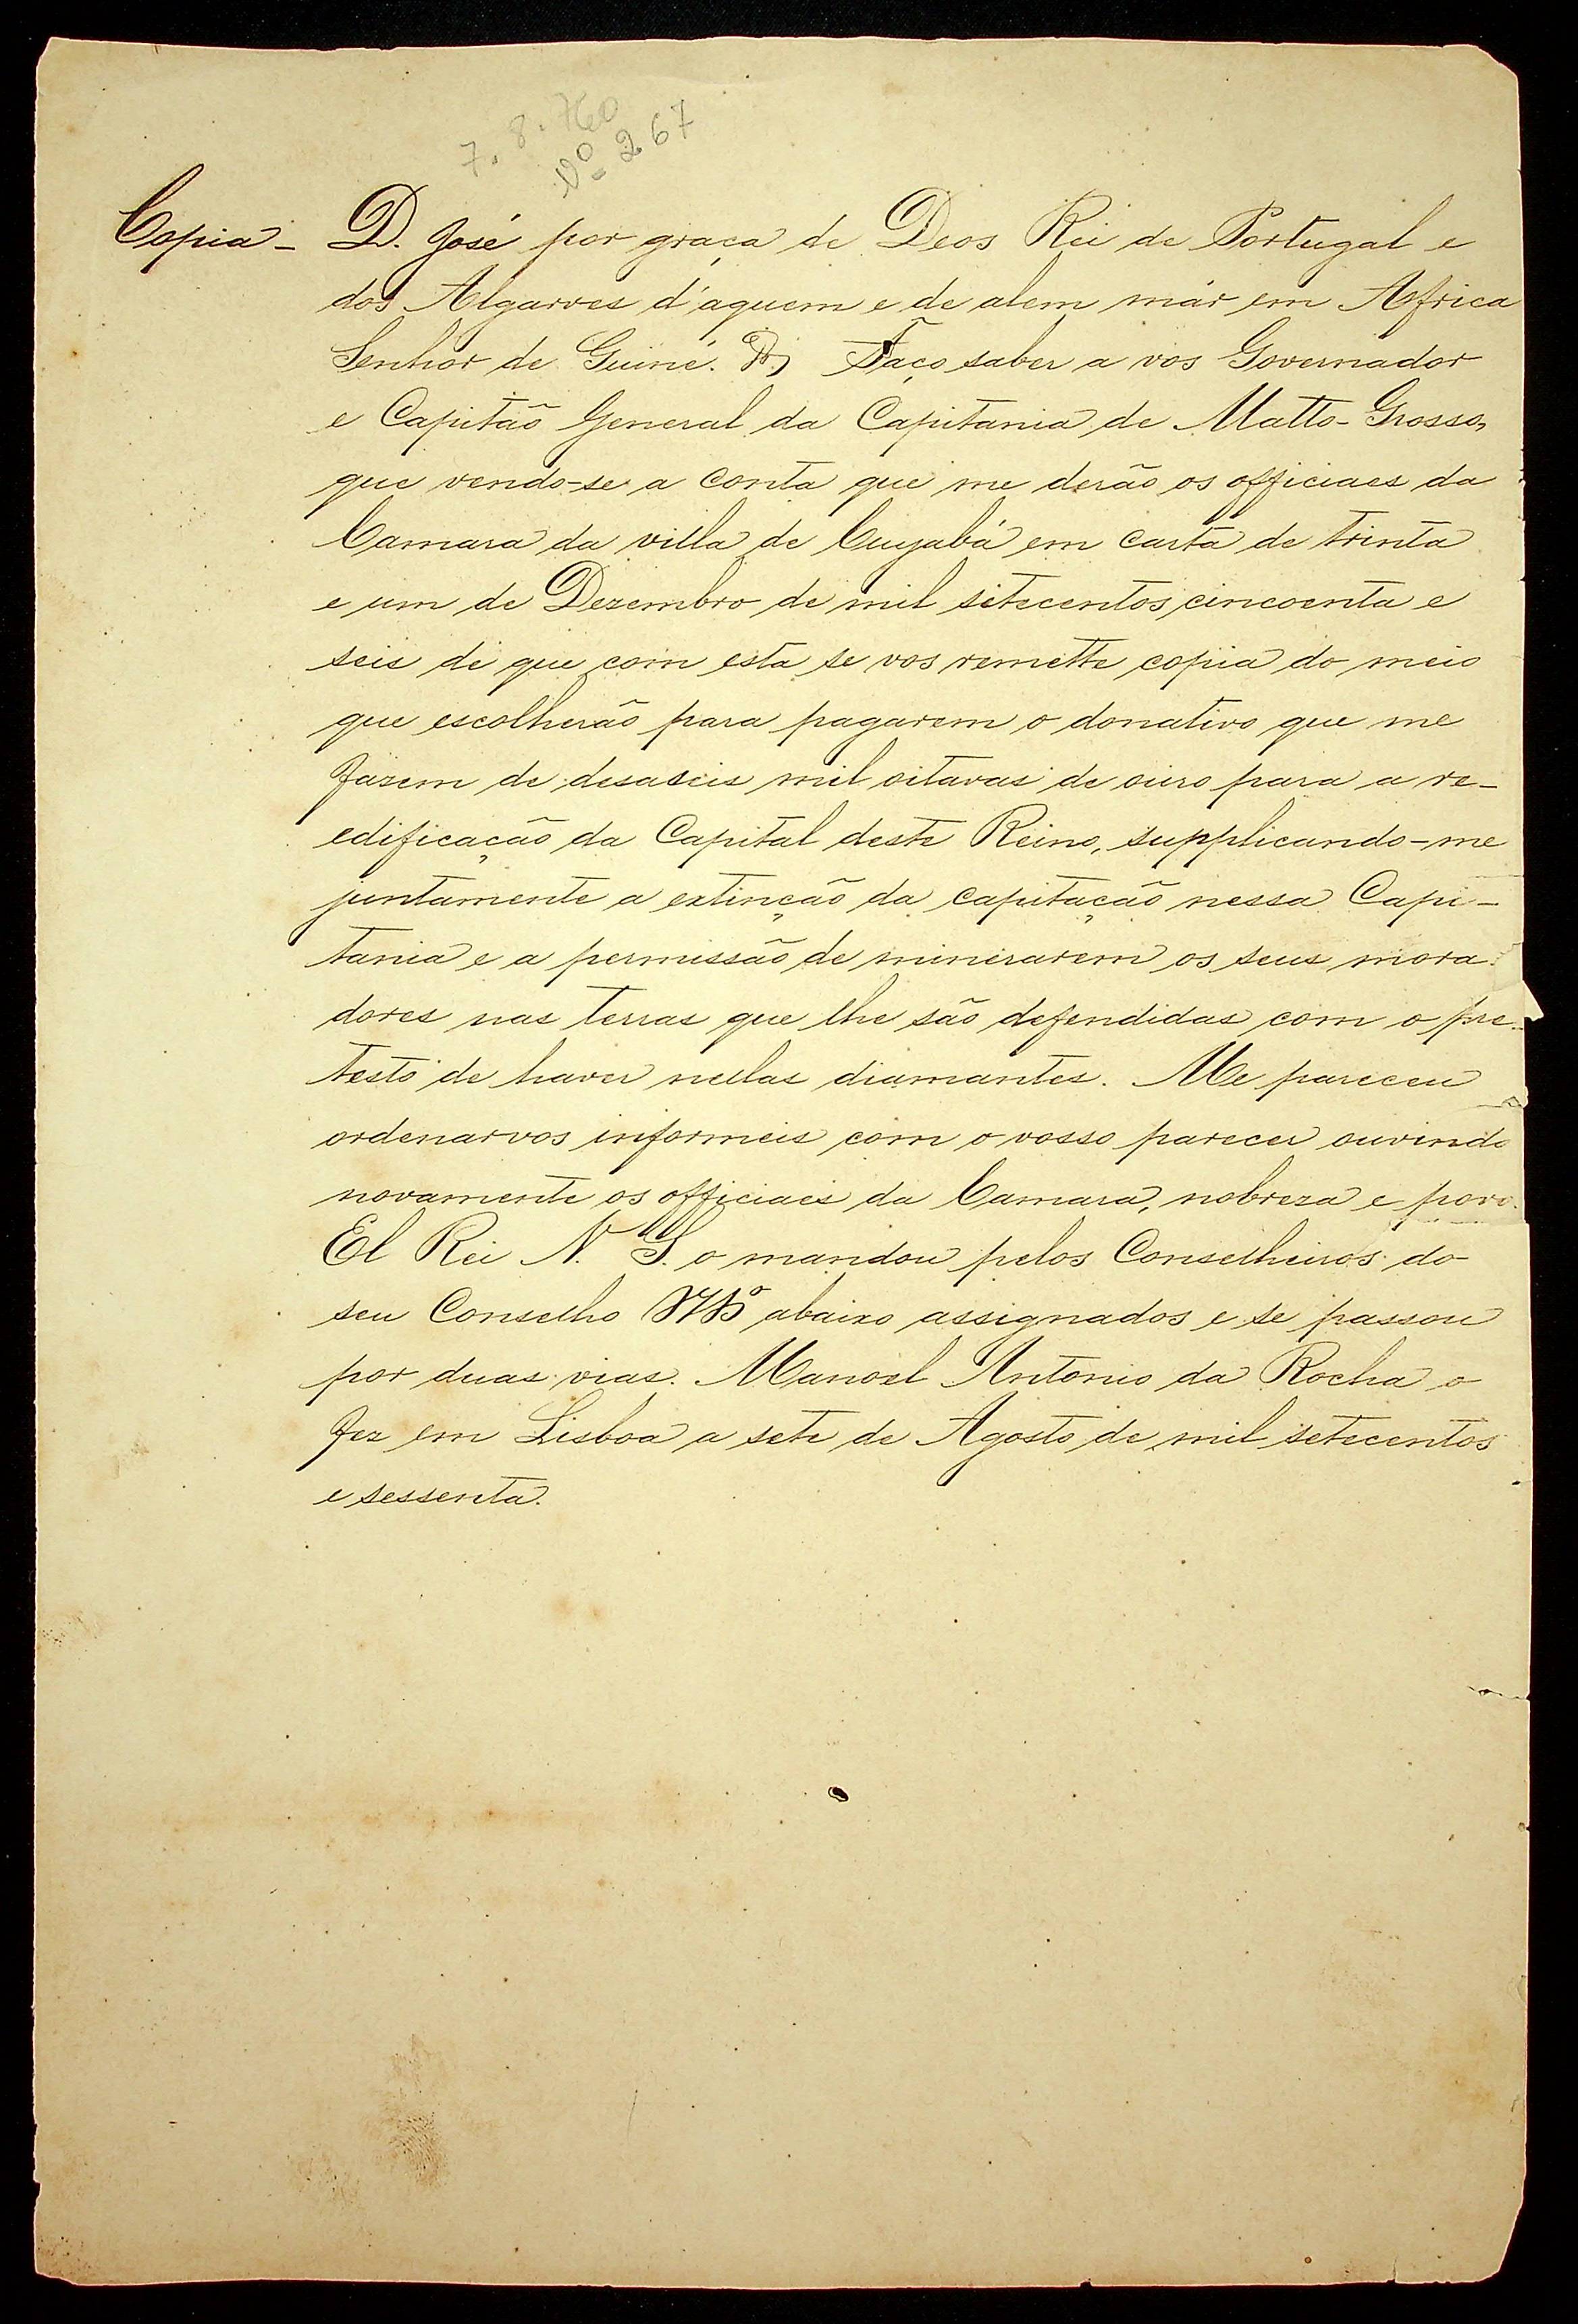 7.8.760
Nº 267
Copia - D. José por graça de Deos Rei de Portugal e
dos Algarves d'aquem e de alem már em Africa
Senhor de Guiné. Faço saber a vos Governador
e Capitão General da Capitania de Matto-Grosso,
que vendo-se a conta que me derão os officiaes da
Camara da villa de Cuyabá em carta de trinta
e um de Dezembro de mil setecentos cincoenta e
seis de que com esta se vos remette copia do meio
que escolherão para pagarem o donativo que me
fazem de desaseis mil oitavas de ouro para a re-
edificação da Capital deste Reino, supplicando-me
juntamente a extinção da capitação nessa Capi-
tania e a permissão de minerarem os seus mora-
dores nas terras que lhe são defendidas com o pre-
testo de haver nellas diamantes. Me pareceu
ordenarvos informeis com o vosso parecer ouvindo
novamente os officiaes da Camara, nobreza e povo.
El Rei N. S. o mandou pelos Conselheiros do
seu Conselho abaixo assignados e se passou
por duas vias. Manoel Antonio da Rocha o
fez em Lisboa a sete de Agosto de mil setecentos
e sessenta.